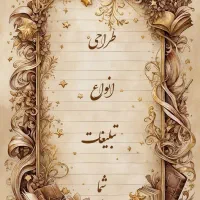 طراحی
انواع
تبلیغات
شما